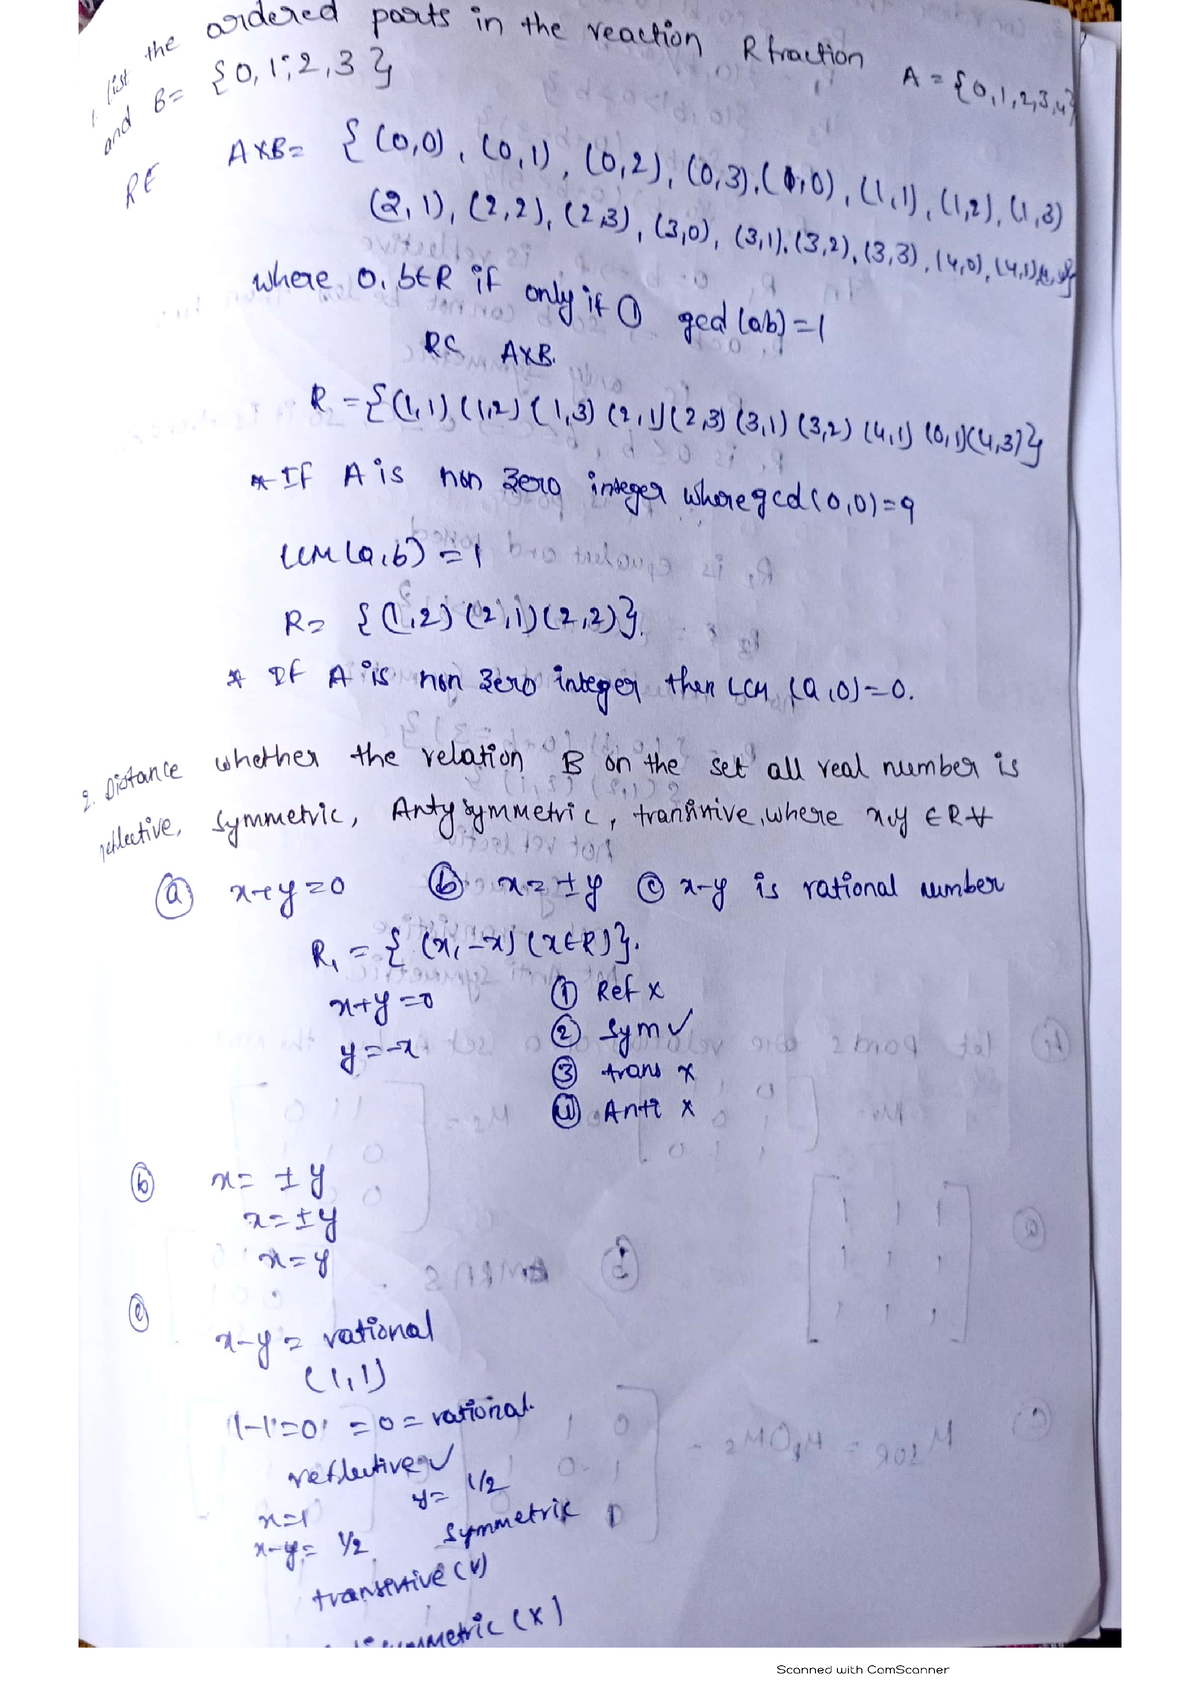 1. list the ordered parts in the reaction R fraction A = {0,1,2,3,4}
and B= {0,1,2,3}
RE A×B= { (0,0), (0,1), (0,2), (0,3), (1,0), (1,1), (1,2), (1,3)
(2,1), (2,2), (2,3), (3,0), (3,1), (3,2), (3,3), (4,0), (4,1)
where 0, b∈R if only if ① gcd (ab) = 1
RC A×B.
R = {(1,1) (1,2) (1,3) (2,1) (2,3) (3,1) (3,2) (4,1) (0,1) (4,3)}
* If A is non zero integer where gcd (0,0) = 9
LCM (a,b) = 1
R= {(1,2) (2,1) (2,2)}.
* If A is non zero integer then LCM (a,0) = 0.
2. Distance whether the relation B on the set all real number is
reflective, symmetric, Anty symmetric, transitive, where x,y ∈ R ∀
ⓐ x+y=0 ⓑ x=±y ⓒ x-y is rational number
R₁ = { (x,-x) (x∈R)}.
x+y=0 ① Ref x
y=-x ② Sym ✓
③ trans x
④ Anti x
ⓑ x= ±y
x=±y
x=y
ⓒ x-y = rational
(1,1)
1-1=0 = 0 = rational.
reflective ✓
x=1 y= 1/2
x-y= 1/2 Symmetric
transitive (✓)
(x)
Scanned with CamScanner